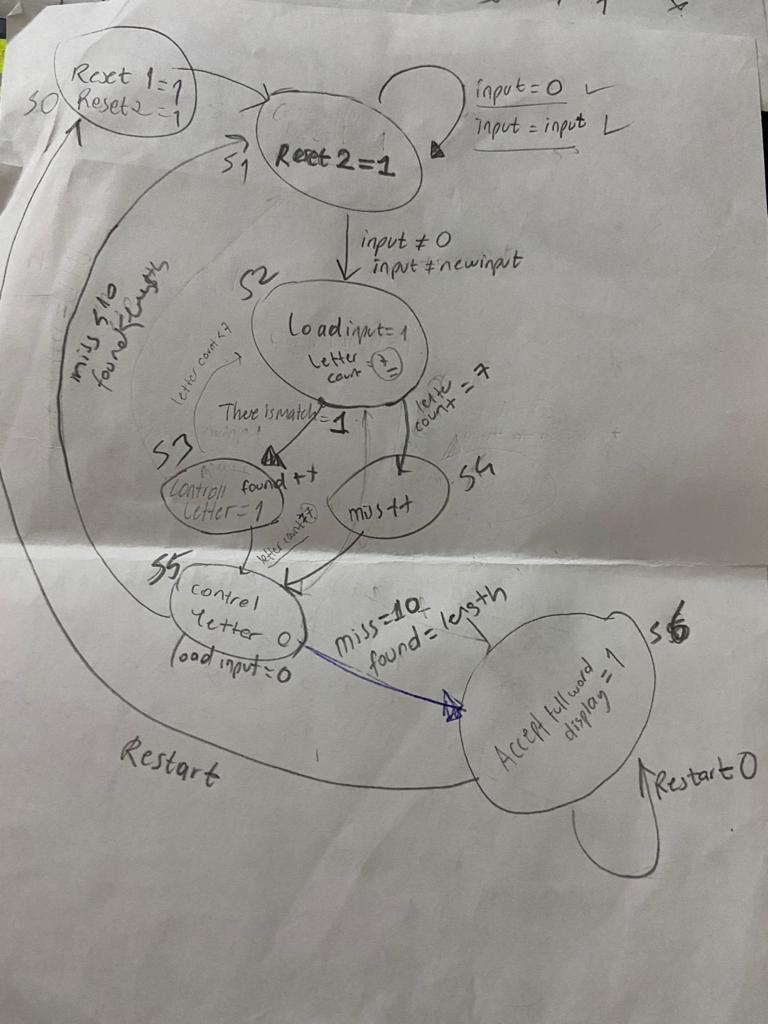 S0
Reset 1=1
Reset 2=1
S1
Reset 2=1
input=0
input=input
input≠0
input≠newinput
S2
Load input=1
letter
count
miss≤10
found≤length
letter count<7
There is match=1
letter
count=7
S3
found++
Controll
letter=1
S4
miss++
letter count
S5
control
letter 0
load input=0
miss=10
found=length
S6
Accept full word
display=1
Restart
Restart 0